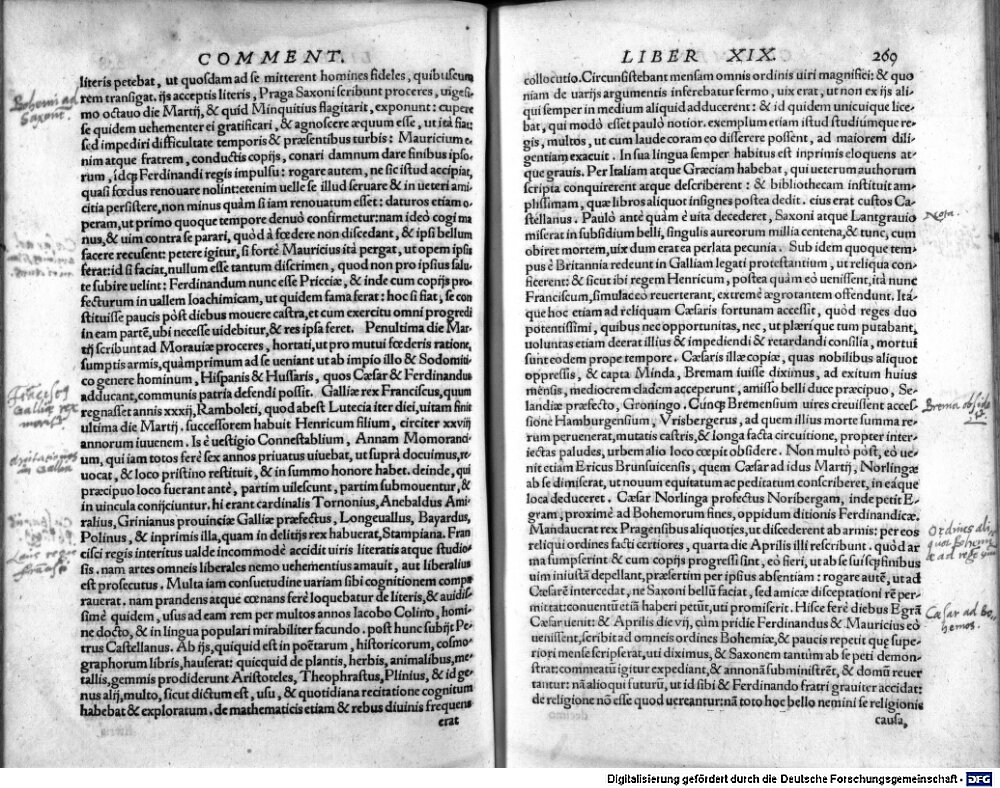 COMMENT.
literis petebat, ut quosdam ad se mitterent homines fideles, quibuscum
rem transigat. ijs acceptis literis, Praga Saxoni scribunt proceres, uigesi-
mo octauo die Martij, & quid Minquitius flagitarit, exponunt: cupere
se quidem uehementer ei gratificari, & agnoscere æquum esse, ut ita fiat:
sed impediri difficultate temporis & præsentibus turbis: Mauricium e-
nim atque fratrem, conductis copijs, conari damnum dare finibus ipso-
rum, idq; Ferdinandi regis impulsu: rogare autem, ne sic istud accipiat,
quasi fœdus renouare nolint: etenim uelle se illud seruare & in ueteri ami-
citia persistere, non minus quàm si iam renouatum esset: daturos etiam o-
peram, ut primo quoque tempore denuò confirmetur: nam ideò cogi ma
nus, & uim contra se parari, quòd à fœdere non discedant, & ipsi bellum
facere recusent: petere igitur, si fortè Mauricius ità pergat, ut opem ipsis
ferat: id si faciat, nullum esse tantum discrimen, quod non pro ipsius salu-
te subire uelint: Ferdinandum nunc esse Pricciæ, & inde cum copijs pro-
fecturum in uallem Ioachimicam, ut quidem fama ferat: hoc si fiat, se con
stituisse paucis pòst diebus mouere castra, et cum exercitu omni progredi
in eam partē, ubi necesse uidebitur, & res ipsa feret. Penultima die Mar-
tij scribunt ad Morauiæ proceres, hortati, ut pro mutui fœderis ratione,
sumptis armis, quàmprimum ad se ueniant ut ab impio illo & Sodomiti-
co genere hominum, Hispanis & Hussaris, quos Cæsar & Ferdinandus
adducant, communis patria defendi possit. Galliæ rex Franciscus, quum
regnasset annis xxxij, Ramboleti, quod abest Lutecia iter diei, uitam finit
ultima die Martij. successorem habuit Henricum filium, circiter xxviij
annorum iuuenem. Is è uestigio Connestablium, Annam Momoranci-
um, qui iam totos ferè sex annos priuatus uiuebat, ut suprà docuimus, re-
uocat, & loco pristino restituit, & in summo honore habet. deinde, qui
præcipuo loco fuerant antè, partim uilescunt, partim submouentur, &
in uincula conijciuntur. hi erant cardinalis Tornonius, Anebaldus Ami-
ralius, Grinianus prouinciæ Galliæ præfectus, Longeuallus, Bayardus,
Polinus, & inprimis illa, quam in delitijs rex habuerat, Stampiana. Fran
cisci regis interitus ualde incommodè accidit uiris literatis atque studio-
sis. nam artes omneis liberales nemo uehementius amauit, aut liberalius
est prosecutus. Multa iam consuetudine uariam sibi cognitionem compa
rauerat. nam prandens atque cœnans ferè loquebatur de literis, & auidis-
simè quidem, usus ad eam rem per multos annos Iacobo Colino, homi-
ne docto, & in lingua populari mirabiliter facundo. post hunc subijt Pe-
trus Castellanus. Ab ijs, quiquid est in poëtarum, historicorum, cosmo-
graphorum libris, hauserat: quicquid de plantis, herbis, animalibus, me-
tallis, gemmis prodiderunt Aristoteles, Theophrastus, Plinius, & id ge-
nus alij, multo, sicut dictum est, usu, & quotidiana recitatione cognitum
habebat & exploratum. de mathematicis etiam & rebus diuinis frequens
erat
Bohemi ad
Saxonē.
Franciscus
Galliæ rex
moritur
Laus regis
Francisci
LIBER XIX. 269
collocutio. Circunsistebant mensam omnis ordinis uiri magnifici: & quo
niam de uarijs argumentis inferebatur sermo, uix erat, ut non ex ijs ali-
qui semper in medium aliquid adducerent: & id quidem unicuique lice-
bat, qui modò esset paulò notior. exemplum etiam istud studiúmque re-
gis, multos, ut cum laude coram eo disserere possent, ad maiorem dili-
gentiam exacuit. In sua lingua semper habitus est inprimis eloquens at-
que grauis. Per Italiam atque Græciam habebat, qui ueterum authorum
scripta conquirerent atque describerent: & bibliothecam instituit am-
plissimam, quæ libros aliquot insignes postea dedit. eius erat custos Ca-
stellanus. Paulò antè quàm è uita decederet, Saxoni atque Lantgrauio
miserat in subsidium belli, singulis aureorum millia centena, & tunc, cum
obiret mortem, uix dum erat ea perlata pecunia. Sub idem quoque tem-
pus è Britannia redeunt in Galliam legati protestantium, ut reliqua con-
ficerent: & sicut ibi regem Henricum, postea quàm eò uenissent, ità nunc
Franciscum, simulac eò reuerterant, extremè ægrotantem offendunt. Itá-
que hoc etiam ad reliquam Cæsaris fortunam accessit, quòd reges duo
potentissimi, quibus nec opportunitas, nec, ut plærique tum putabant,
uoluntas etiam deerat illius & impediendi & retardandi consilia, mortui
sunt eodem prope tempore. Cæsaris illæ copiæ, quas nobilibus aliquot
oppressis, & capta Minda, Bremam iuisse diximus, ad exitum huius
mēsis, mediocrem cladem acceperunt, amisso belli duce præcipuo, Se-
landiæ præfecto, Groningo. Cunq; Bremensium uires creuissent acces-
sione Hamburgensium, Vrisbergerus, ad quem illius morte summa re-
rum peruenerat, mutatis castris, & longa facta circuitione, propter inter-
iectas paludes, urbem alio loco cœpit obsidere. Non multò pòst, eò ue-
nit etiam Ericus Brunsuicensis, quem Cæsar ad idus Martij, Norlingæ
ab se dimiserat, ut nouum equitatum ac peditatum conscriberet, in eaque
loca deduceret. Cæsar Norlinga profectus Noribergam, inde petit E-
gram, proximè ad Bohemorum fines, oppidum ditionis Ferdinandicæ.
Mandauerat rex Pragensibus aliquoties, ut discederent ab armis: per eos
reliqui ordines facti certiores, quarta die Aprilis illi rescribunt. quòd ar
ma sumpserint & cum copijs progressi sint, eò fieri, ut ab se suisq; finibus
uim iniustā depellant, præsertim per ipsius absentiam: rogare autē, ut ad
Cæsarē intercedat, ne Saxoni bellū faciat, sed amicæ disceptationi rē per-
mittat: conuentū etiā haberi petūt, uti promiserit. Hisce ferè diebus Egrā
Cæsar uenit: & Aprilis die vij, cùm pridie Ferdinandus & Mauricius eò
uenissent, scribit ad omneis ordines Bohemiæ, & paucis repetit quę supe-
riori mense scripserat, uti diximus, & Saxonem tantùm ab se peti demon-
strat: commeatū igitur expediant, & annonā subministrēt, & domū reuer
tantur: nā alioqui futurū, ut id sibi & Ferdinando fratri grauiter accidat:
de religione nō esse quòd uereantur: nā toto hoc bello nemini se religionis
causa,
Nota.
Brema obside
Ordines ali,
Cæsar ad bo,
hemos.
Digitalisierung gefördert durch die Deutsche Forschungsgemeinschaft - DFG